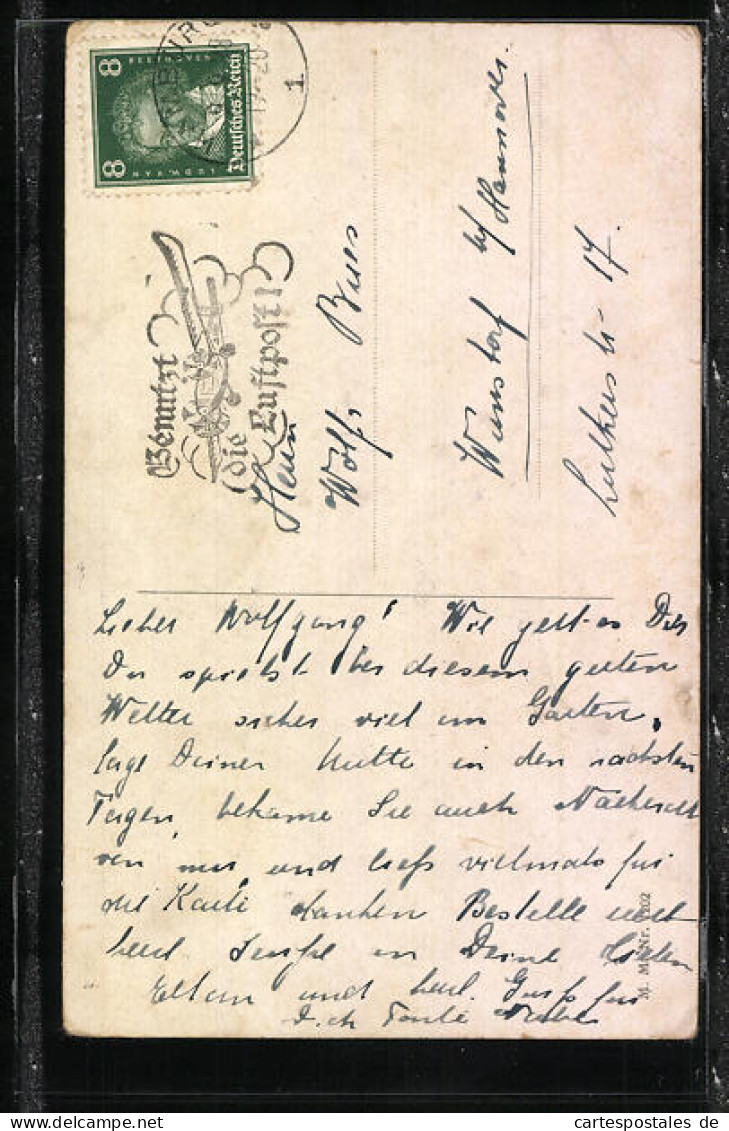 BEETHOVEN
8 8
Deutsches Reich
Benutzt
die Luftpost!
Herrn
Wolfg. Buses
Wunstorf b/ Hannover.
Lutherstr. 17.
Lieber Wolfgang! Wie geht es Dir
Du spielst bei diesem guten
Wetter sicher viel im Garten,
sage Deiner Mutti in den nächsten
Tagen, bekäme Sie auch Nachricht
von mir, und ließ vielmals für
die Karte danken Bestelle recht
herzl. Grüße an Deine lieben
Eltern und herzl. Gruß für
Dich Tante
M. M. Nr. 1202
cartespostales de